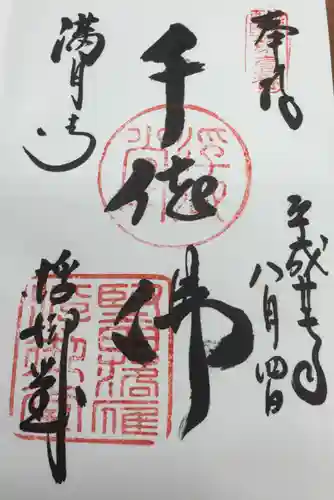 奉拝
平成廿七年
八月四日
千体佛
満月寺
浮御堂